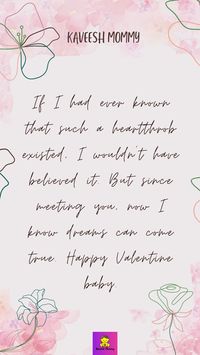 KAVEESH MOMMY
If I had ever known
that such a heartthrob
existed, I wouldn't have
believed it. But since
meeting you, now I
know dreams can come
true. Happy Valentine
baby